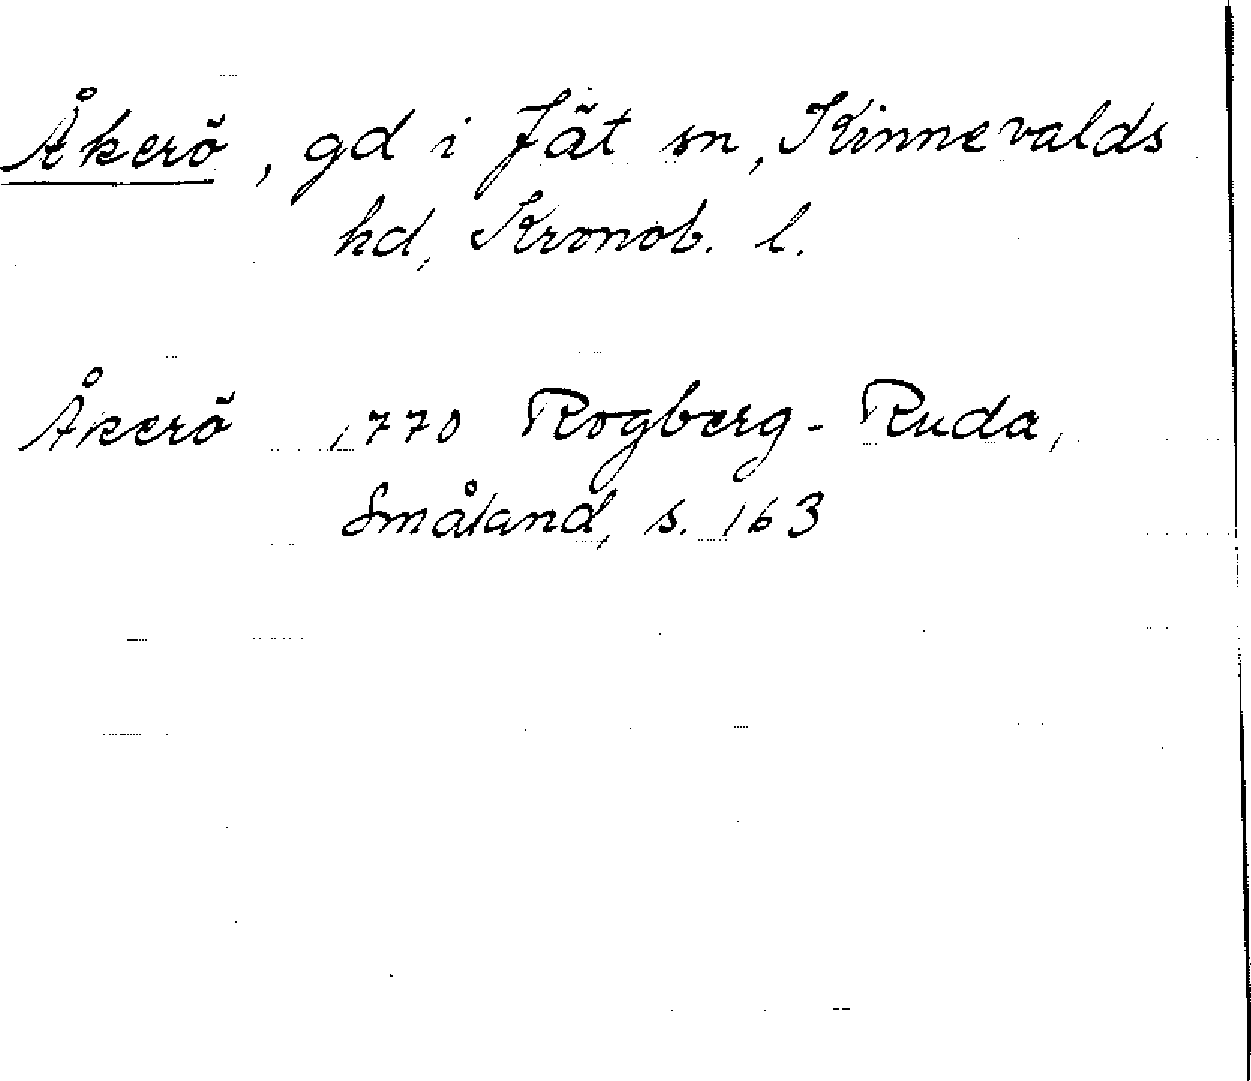 Åkerö, gd i Jät sn, Kinnevalds
hd, Kronob. l.
Åkerö 1770 Rogberg-Ruda,
Småland, s. 163